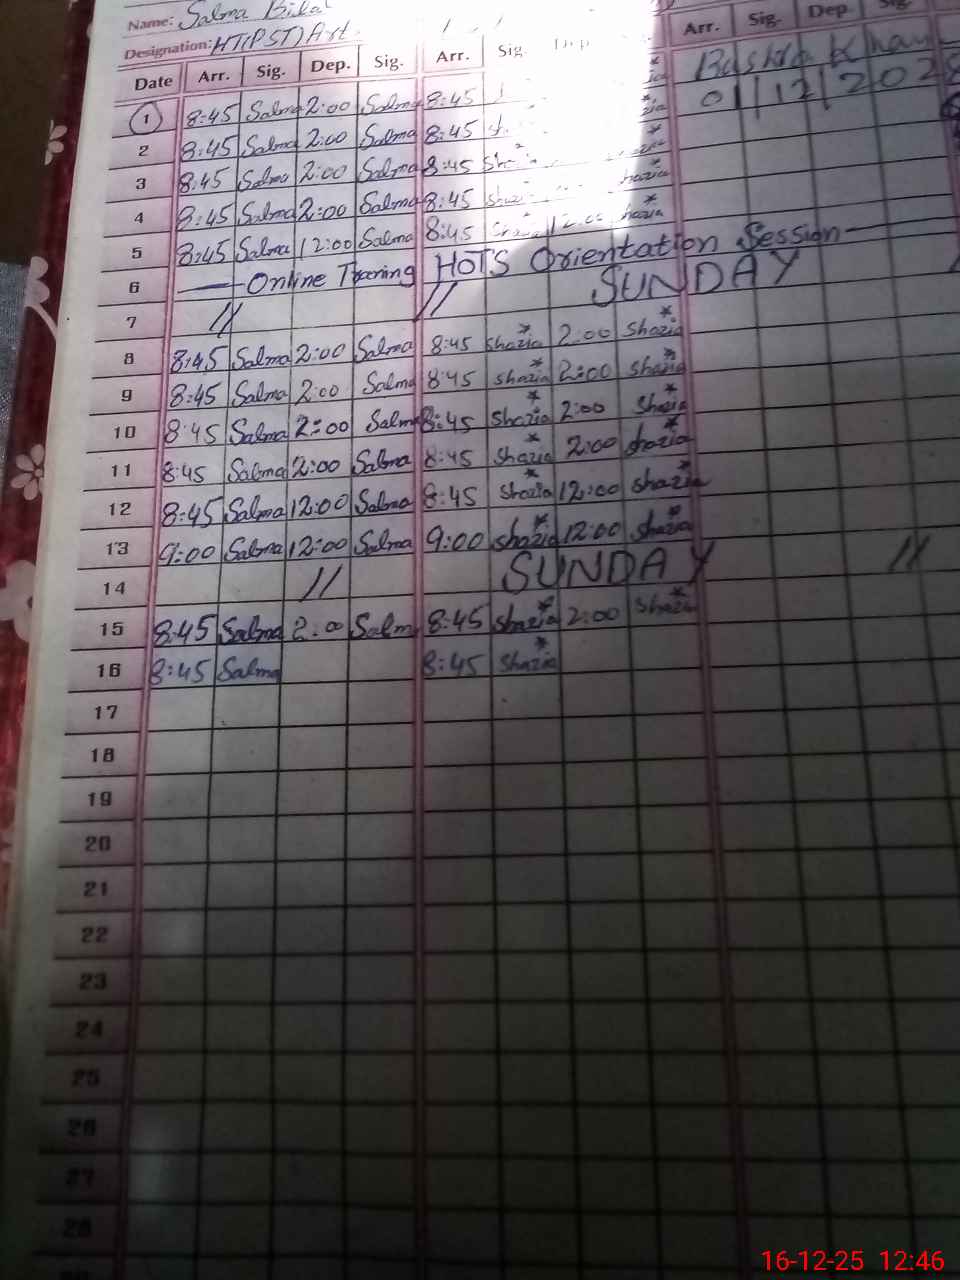 Name: Salma Bilal
Designation: HT(PST) Art.
Date Arr. Sig. Dep. Sig. Arr. Sig. Dep Arr. Sig. Dep. Sig.
Bushra Khan
1 8:45 Salma 2:00 Salma 8:45 01 12 202
2 8:45 Salma 2:00 Salma 8:45
3 8:45 Salma 2:00 Salma 8:45
4 8:45 Salma 2:00 Salma 8:45 Shazia
5 8:45 Salma 12:00 Salma 8:45
6 Online Traning HOTS Orientation Session
7 // // SUNDAY
8 8:45 Salma 2:00 Salma 8:45 Shazia 2:00 Shazia
9 8:45 Salma 2:00 Salma 8:45 Shazia 2:00 Shazia
10 8:45 Salma 2:00 Salma 8:45 Shazia 2:00 Shazia
11 8:45 Salma 2:00 Salma 8:45 Shazia 2:00 Shazia
12 8:45 Salma 12:00 Salma 8:45 Shazia 12:00 Shazia
13 9:00 Salma 12:00 Salma 9:00 Shazia 12:00 Shazia
14 // SUNDAY //
15 8:45 Salma 2:00 Salma 8:45 Shazia 2:00 Shazia
16 8:45 Salma 8:45 Shazia
17
18
19
20
21
22
23
24
25
26
27
28
16-12-25 12:46